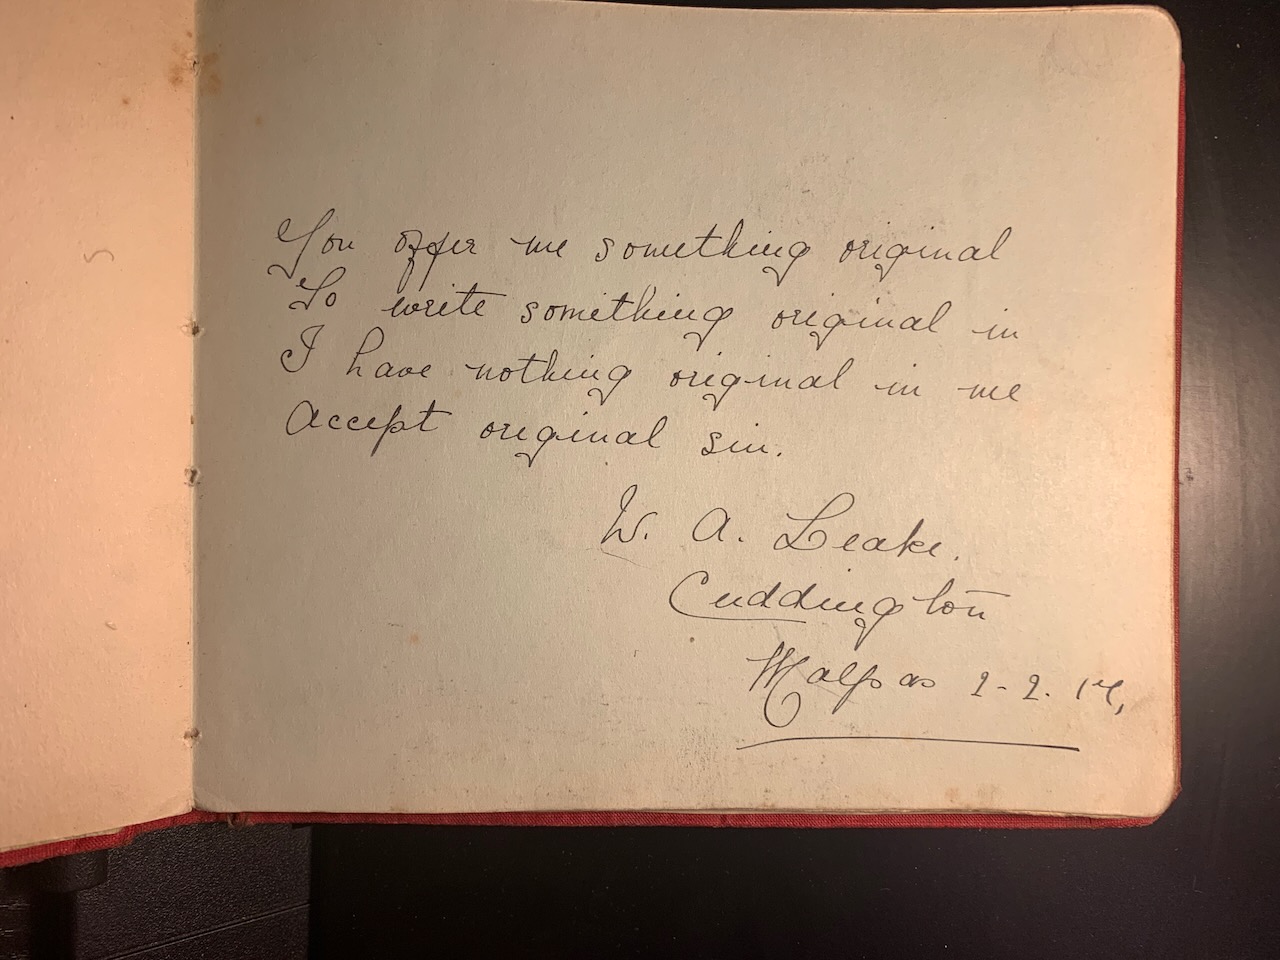 You offer me something original
To write something original in
I have nothing original in me
Accept original sin.
W. A. Leake.
Cuddington
Malpas 2-2.